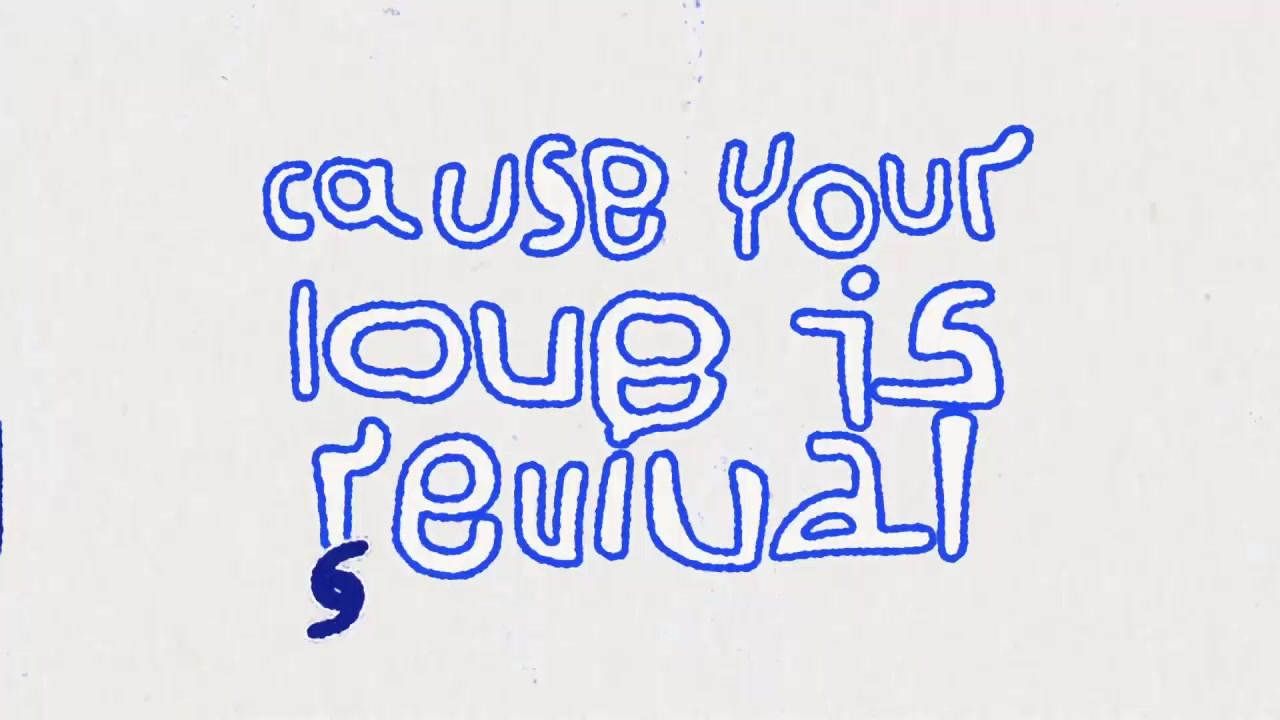 cause your
love is
revival
s